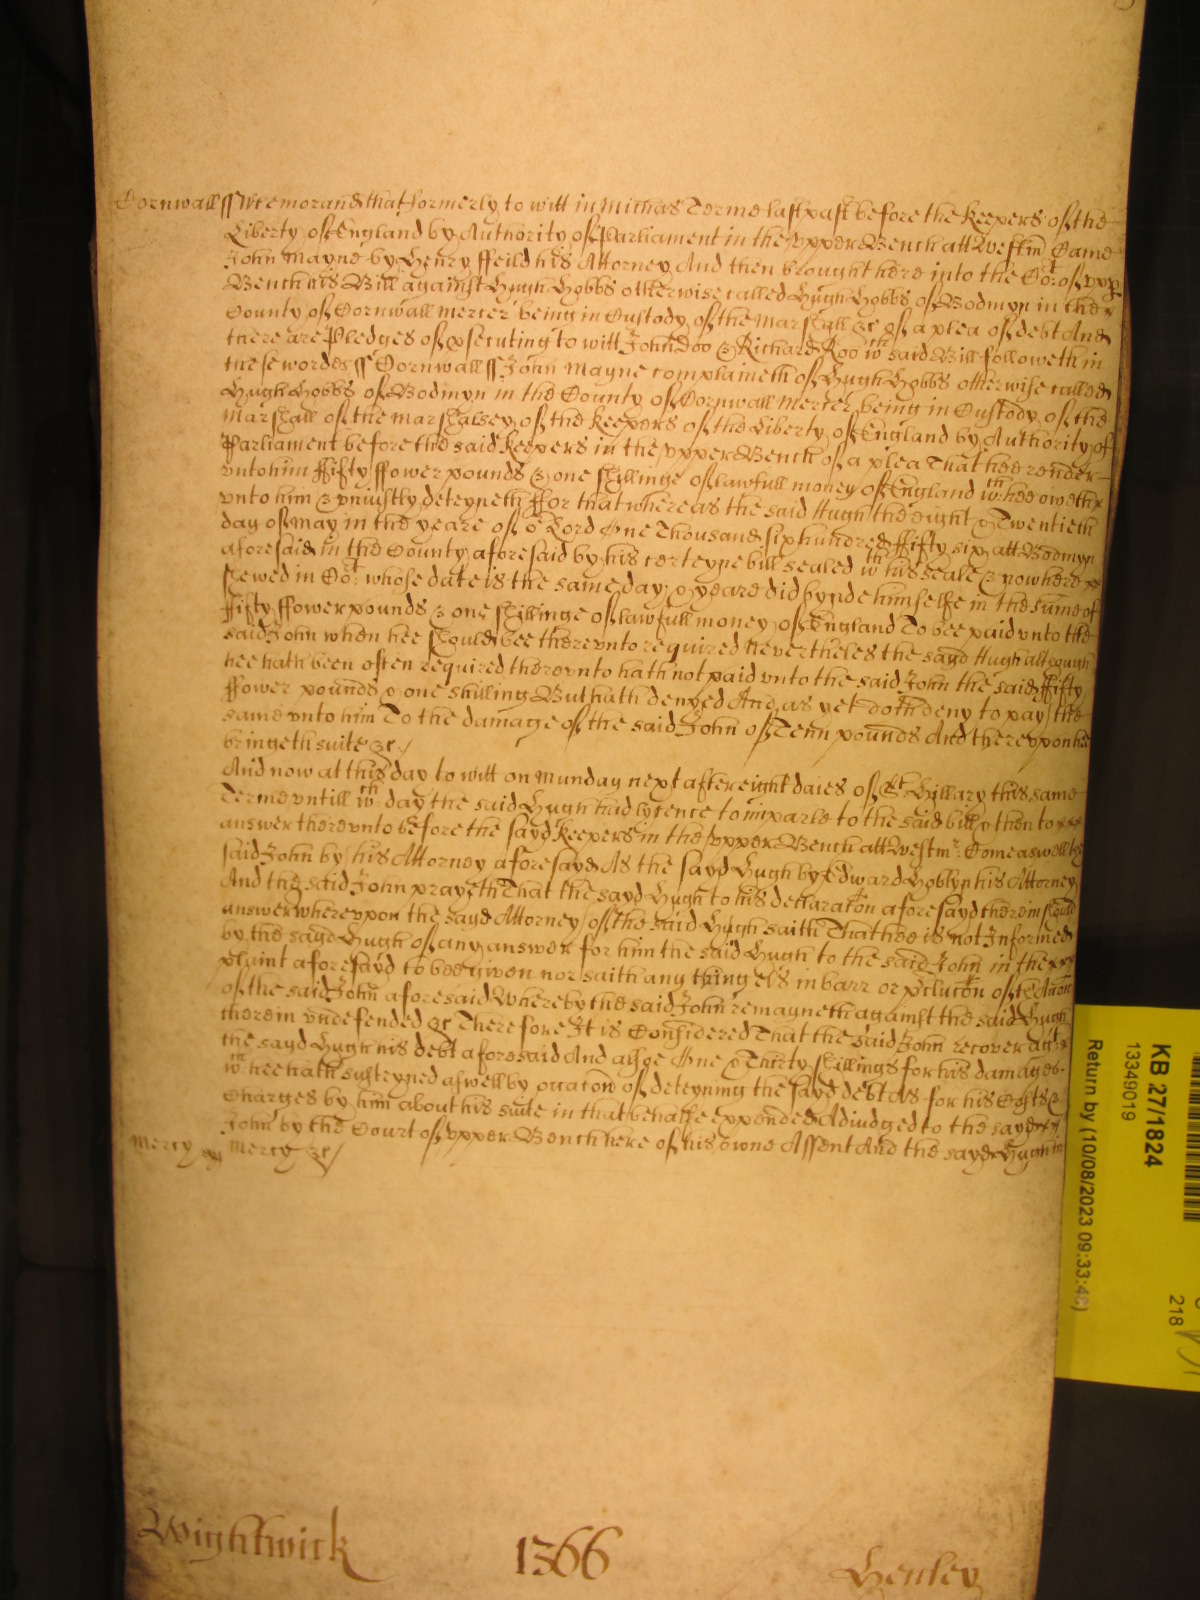 Cornwall ss Memorand that formerly to witt in Michas Terme last past before the Keepers of the
Liberty of England by Authority of Parliament in the vpper Bench att Westmr Came
John Mayne by Henry ffeild his Attorney And then brought here into the Cot of vpp
Bench his Bill against Hugh Hobbs otherwise called Hugh Hobbs of Bodmyn in the
County of Cornwall Mercer being in Custody of the Marshall &c of a plea of debt And
there are Pledges of psecuting to witt John Doo & Richard Roo wch said Bill followeth in
these wordes ss Cornwall ss John Mayne complaineth of Hugh Hobbs otherwise called
Hugh Hobbs of Bodmyn in the County of Cornwall Mercer being in Custody of the
Marshall of the Marshalsey of the Keepers of the Liberty of England by Authority of
Parliament before the said Keepers in the vpper Bench of a plea That hee render
vnto him ffifty ffower pounds & one shillinge of lawfull money of England wch hee oweth
vnto him & vniustly deteyneth ffor that whereas the said Hugh the eight & Twentieth
day of May in the yeare of or Lord One Thousand six hundred ffifty six att Bodmyn
aforesaid in the County aforesaid by his certeyne bill sealed wth his seale & now here
shewed in Cot whose date is the same day & yeare did bynde himselfe in the sume of
ffifty ffower pounds & one shillinge of lawfull money of England To bee paid vnto the
said John when hee should bee therevnto required Nevertheles the sayd Hugh although
hee hath been often required therevnto hath not paid vnto the said John the said ffifty
ffower pounds & one shilling But hath denyed And as yet doth deny to pay the
same vnto him To the damage of the said John of Tenn pounds And therevpon hee
bringeth suite &c
And now at this day to witt on Munday next after eight daies of St Hyllary this same
Terme vntill wch day the said Hugh had lycence to imparle to the said bill & then to
answer therevnto before the sayd Keepers in the vpper Bench att Westmr Come aswell the
said John by his Attorney aforesayd As the sayd Hugh by Edward Hoblyn his Attorney
And the said John prayeth That the sayd Hugh to his declaracon aforesayd therein should
answer wherevpon the sayd Attorney of the said Hugh saith That hee is not Informed
by the sayd Hugh of any answer for him the said Hugh to the said John in the
plaint aforesayd to bee given nor saith any thing els in barr or pclucon of the Action
of the said John aforesaid Whereby the said John remayneth against the said Hugh
therein vndefended &c Therefore It is Considered That the said John recover agt
the sayd Hugh his debt aforesaid And alsoe One & Thirty shillings for his damages
wch hee hath susteyned aswell by occacon of deteyning the sayd debt As for his Costs &
Charges by him about his suite in that behalfe expended Adiudged to the sayd
John by the Court of vpper Bench here of his owne Assent And the sayd Hugh in
Mercy Mercy &c
Wightwick 1366 Henley
KB 27/1824
13349019
Return by (10/08/2023 09:33:48)
218